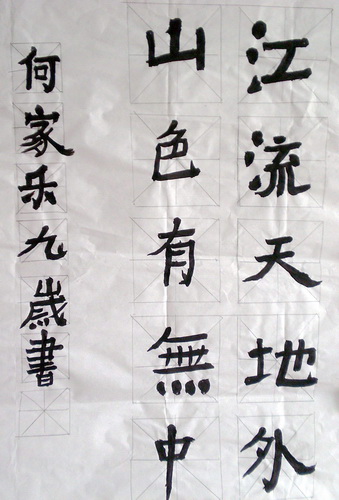 江流天地外
山色有無中
何家乐九歳書